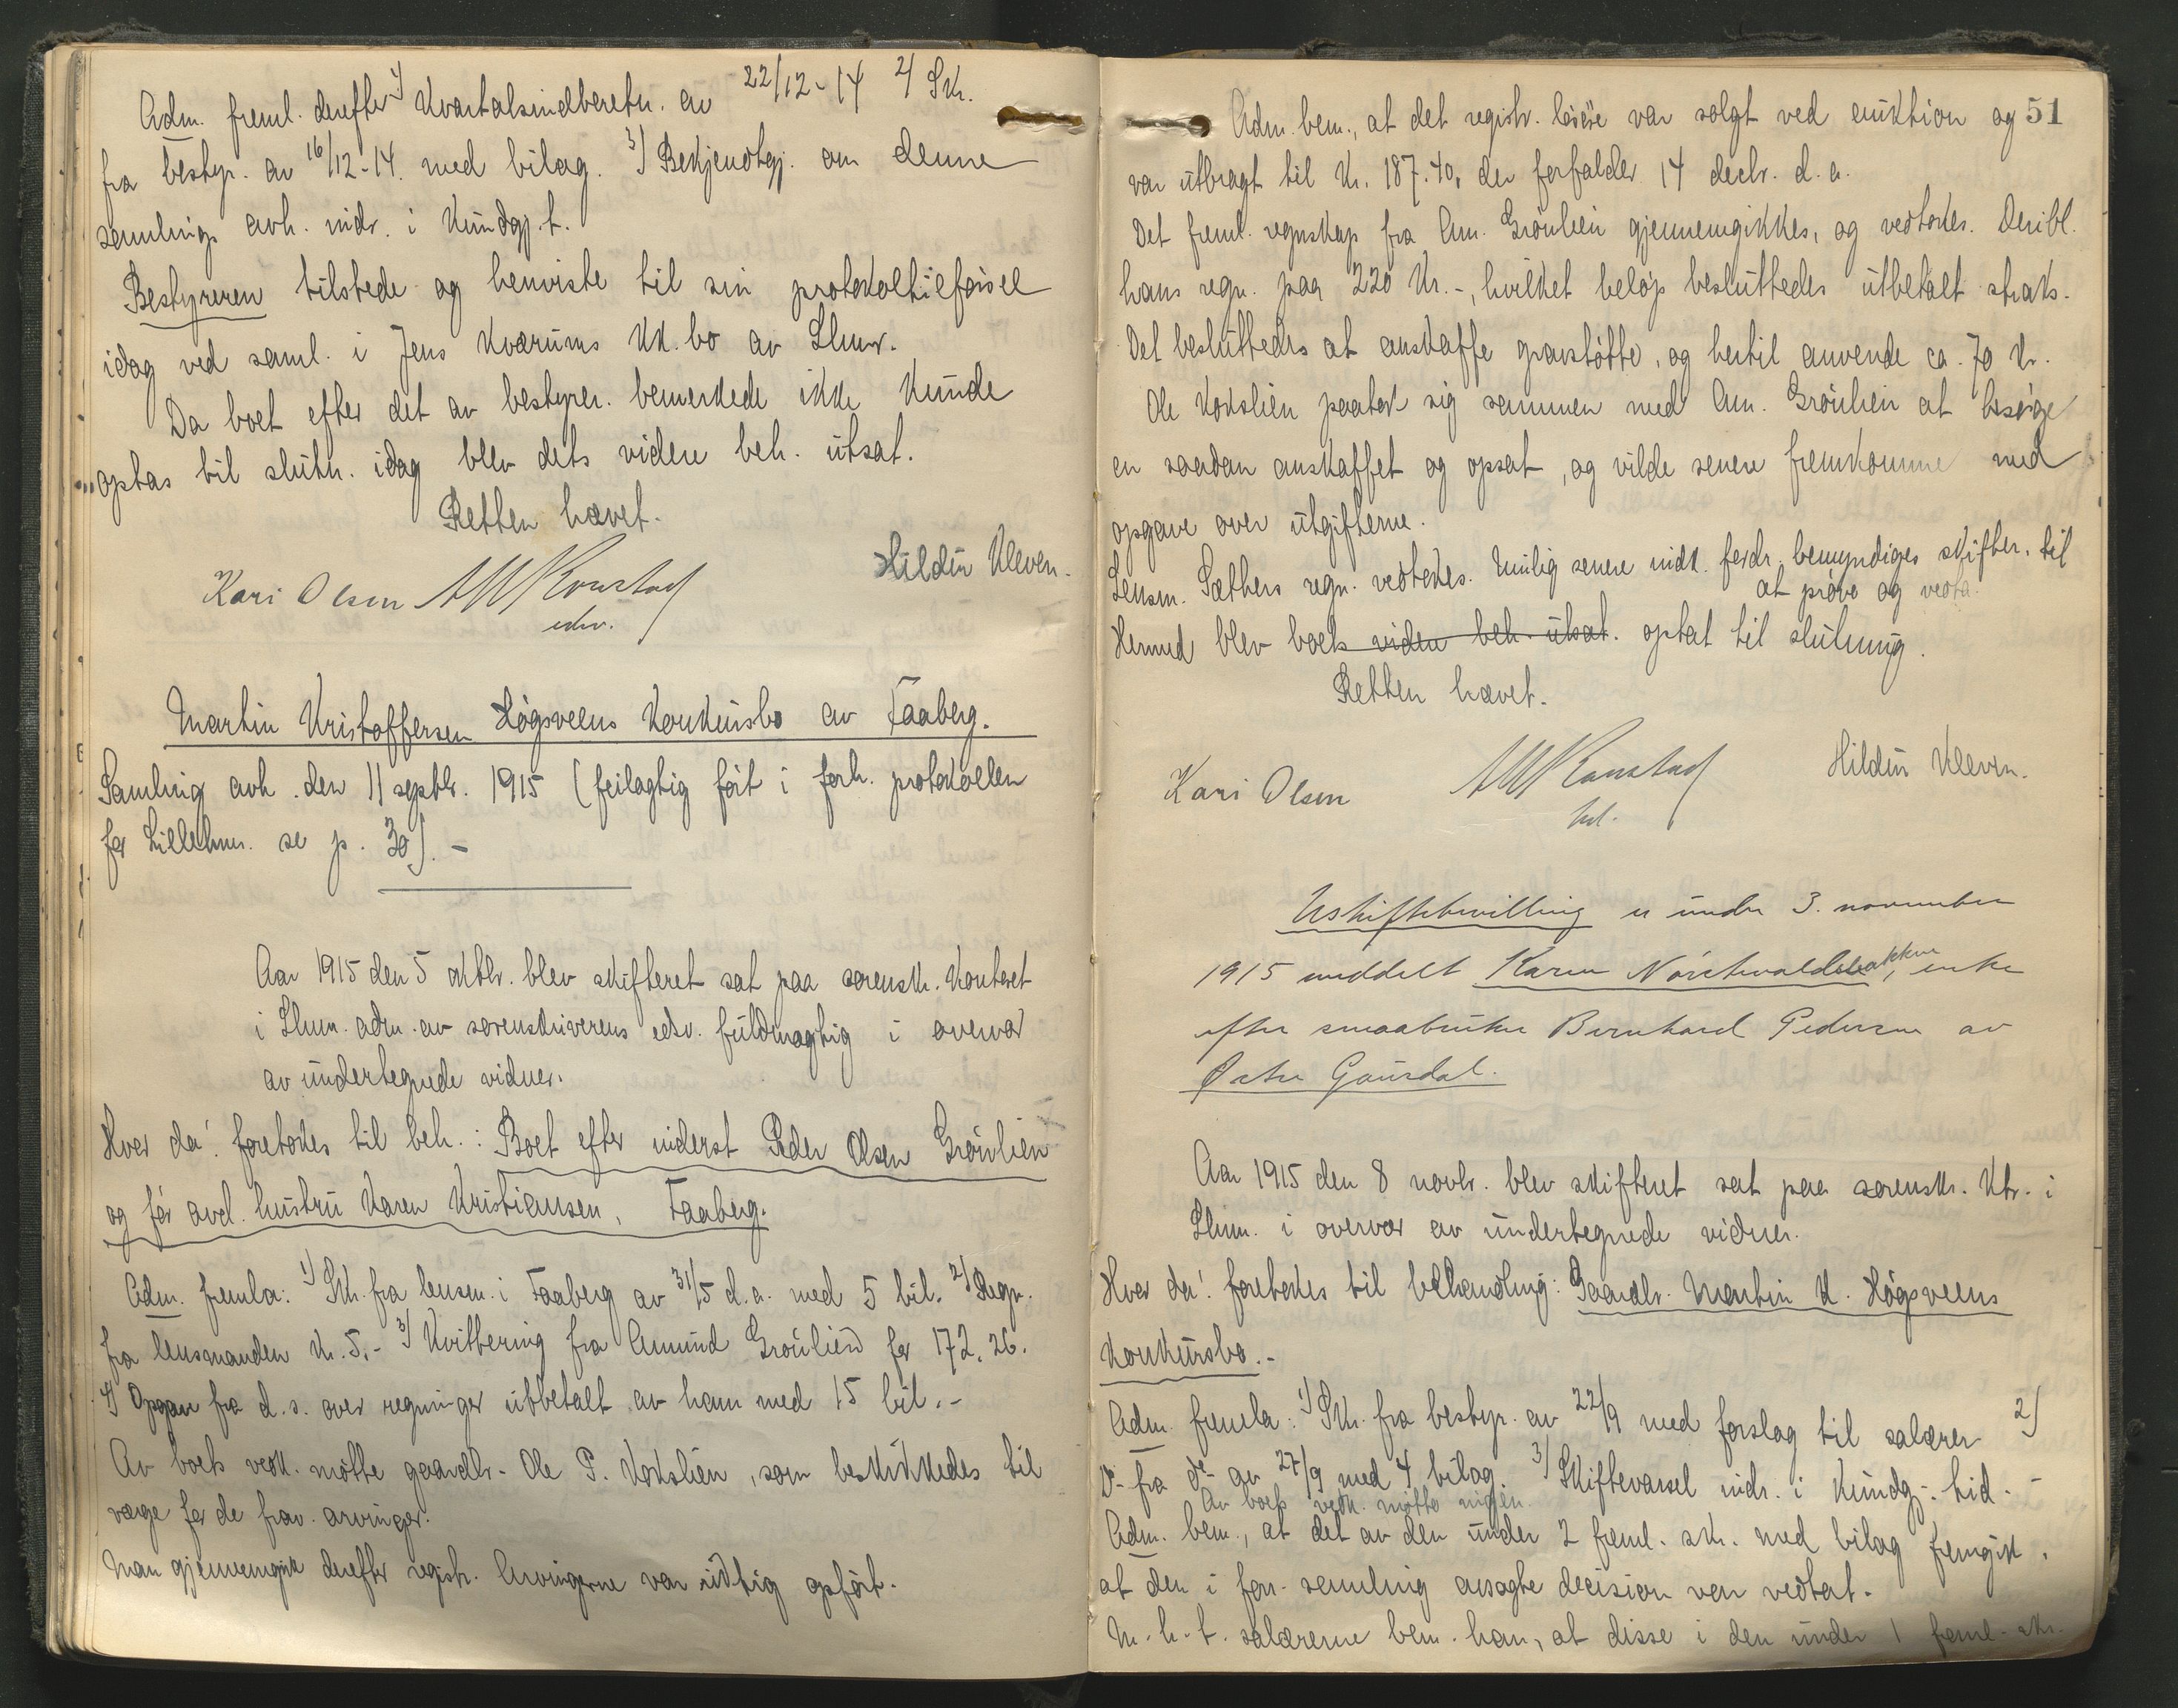 Adm. freml. derefter 1) Kvartalsindberetn. av 22/12-14 2) Skr.
fra bestyr. av 16/12-14. med bilag. 3) Bekjendtgj. om denne
samling avh. indr. i Kundgj.t.
Bestyreren tilstede og henviste til sin protokoltilførsel
idag ved saml. i Jens Kværums Kk.bo av Lhmr.
Da boet efter det av bestyrer. bemerkede ikke kunde
optas til slutn. idag blev dets videre beh. utsat.
Retten hævet.
Kari Olsen
edsv.
Hildur Kleven.
Martin Kristoffersen Høgsveens Konkursbo av Faaberg.
Samling avh. den 11 septbr. 1915 (feilagtig ført i forh. protokollen
for Lillehmr. se p. 30). -
Aar 1915 den 5 oktbr. blev skifteret sat paa sorensk. Kontoret
i Lhmr. adm. av sorenskriverens edsv. fuldmægtig i overvær
av undertegnede vidner.
Hvor da! foretokes til beh.: Boet efter inderst Peder Olsen Grønlien
og før avd. hustru Karen Kristiansen, Faaberg.
Adm. fremla: 1) Skr. fra lensm. i Faaberg av 31/5 d.a. med 5 bil. 2) Regn.
fra lensmanden Kr. 5.- 3) Kvittering fra Amund Grønlien for 172.26.
4) Opgave fra d.s. over regninger utbetalt av ham med 15 bil.-
Av boets vedk. møtte gaardbr. Ole P. Kokslien, som beskikkedes til
værge for de frav. arvinger.
Man gjennemgik derefter registr. Arvingerne var riktig opført.
51
Adm. bem., at det registr. løsøre var solgt ved auktion og
var utbragt til Kr. 187.40, der forfalder 14 decbr. d.a.
Det freml. regnskap fra Am. Grønlien gjennemgikkes, og vedtokes. Deribl.
hans regn. paa 220 Kr.-, hvilket beløp besluttedes utbetalt straks.
Det besluttedes at anskaffe gravstøtte, og hertil anvende ca. 70 Kr.
Ole Kokslien paatok sig sammen med Am. Grønlien at besørge
en saadan anskaffet og opsat, og vilde senere fremkomme med
opgave over utgifterne.
Lensm. Sæthers regn. vedtokes. Mulig senere indk. fordr. bemyndiges skifter. til
at prøve og vedta.
Hermed blev boets videre beh. utsat. optat til slutning.
Retten hævet.
Kari Olsen
Hildur Kleven.
Uskiftebevilling er under 3. november
1915 meddelt Karen Nørstevoldsbakken, enke
efter smaabruker Bernhard Pedersen av
Østre Gausdal.
Aar 1915 den 8 novbr. blev skifteret sat paa sorensk. Ktr. i
Lhmr. i overvær av undertegnede vidner.
Hvor da! foretokes til behandling: Gaardbr. Martin K. Høgsveens
Konkursbo.-
Adm. fremla: 1) Skr. fra bestyr. av 22/9 med forslag til salærer 2)
Do fra do av 27/9 med 4 bilag. 3) Skiftevarsel indr. i Kundgj. tid.-
Av boets vedk. møtte ingen.
Adm. bem., at det av den under 2 freml. skr. med bilag fremgik,
at den i forr. samling avsagte decision var vedtat.
M.h.t. salærerne bem. han, at disse i den under 1 freml. skr.